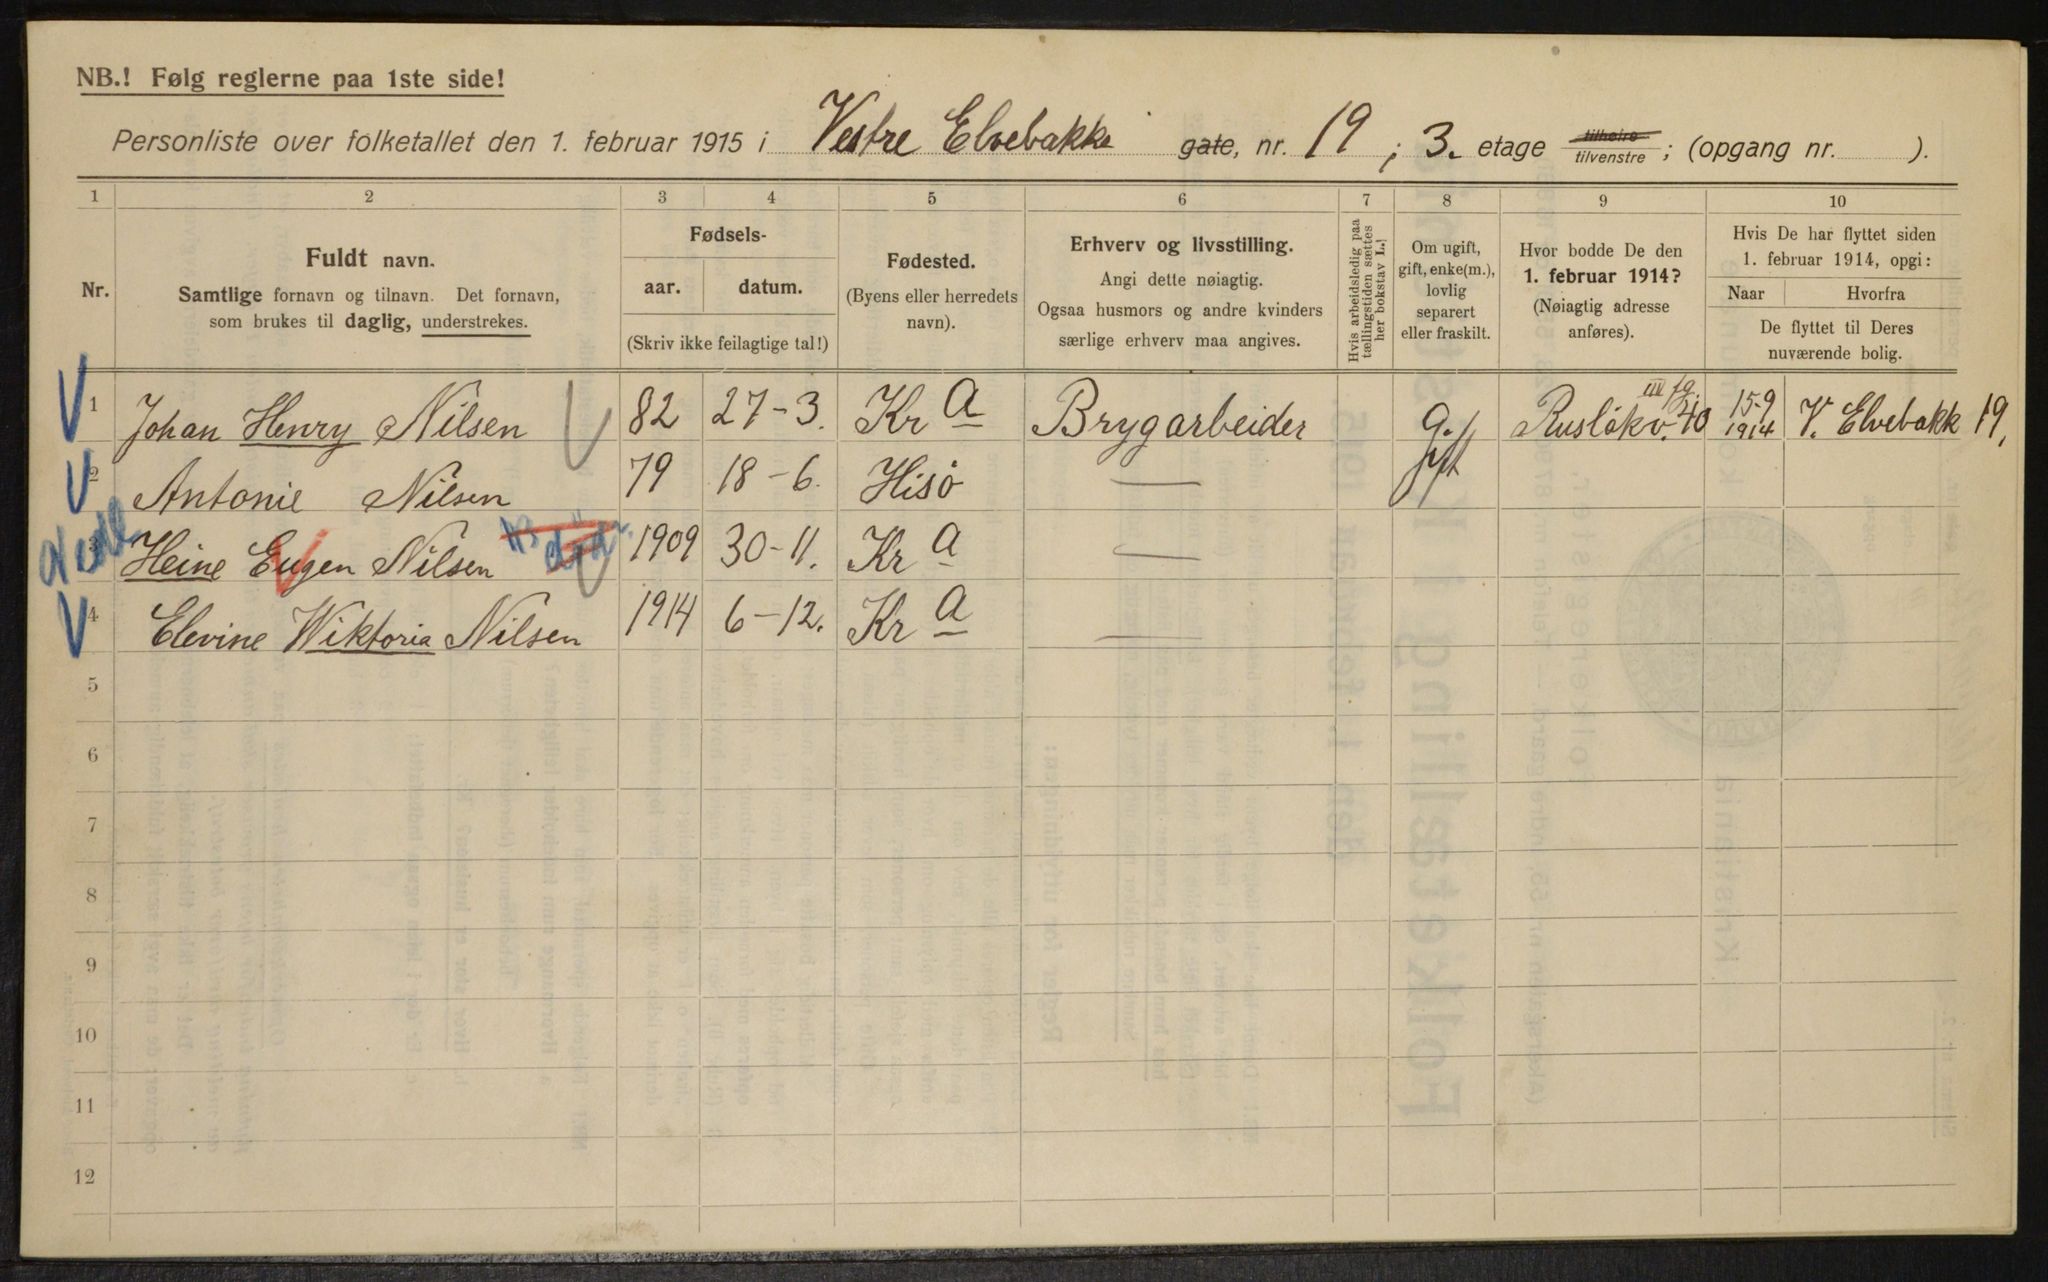 NB.! Følg reglerne paa 1ste side!
Personliste over folketallet den 1. februar 1915 i Vestre Elvebakke gate, nr. 19; 3. etage tilhøire tilvenstre; (opgang nr. ).
1 2 3 4 5 6 7 8 9 10
Nr.
Fuldt navn.
Samtlige fornavn og tilnavn. Det fornavn,
som brukes til daglig, understrekes.
Fødsels-
aar. datum.
(Skriv ikke feilagtige tal!)
Fødested.
(Byens eller herredets
navn).
Erhverv og livsstilling.
Angi dette nøiagtig.
Ogsaa husmors og andre kvinders
særlige erhverv maa angives.
Hvis arbeidsledig paa
tællingstiden sættes
her bokstav L.!
Om ugift,
gift, enke(m.),
lovlig
separert
eller fraskilt.
Hvor bodde De den
1. februar 1914?
(Nøiagtig adresse
anføres).
Hvis De har flyttet siden
1. februar 1914, opgi:
Naar Hvorfra
De flyttet til Deres
nuværende bolig.
1 Johan Henry Nilsen 82 27-3. Kra Brygarbeider g. Rusløkv. 40 15-9 1914 V. Elvebakk 19,
2 Antonie Nilsen 79 18-6. Hisö — gft
3 Heine Eugen Nilsen 1909 30-11. Kra —
4 Elevine Wiktoria Nilsen 1914 6-12. Kra —
5
6
7
8
9
10
11
12